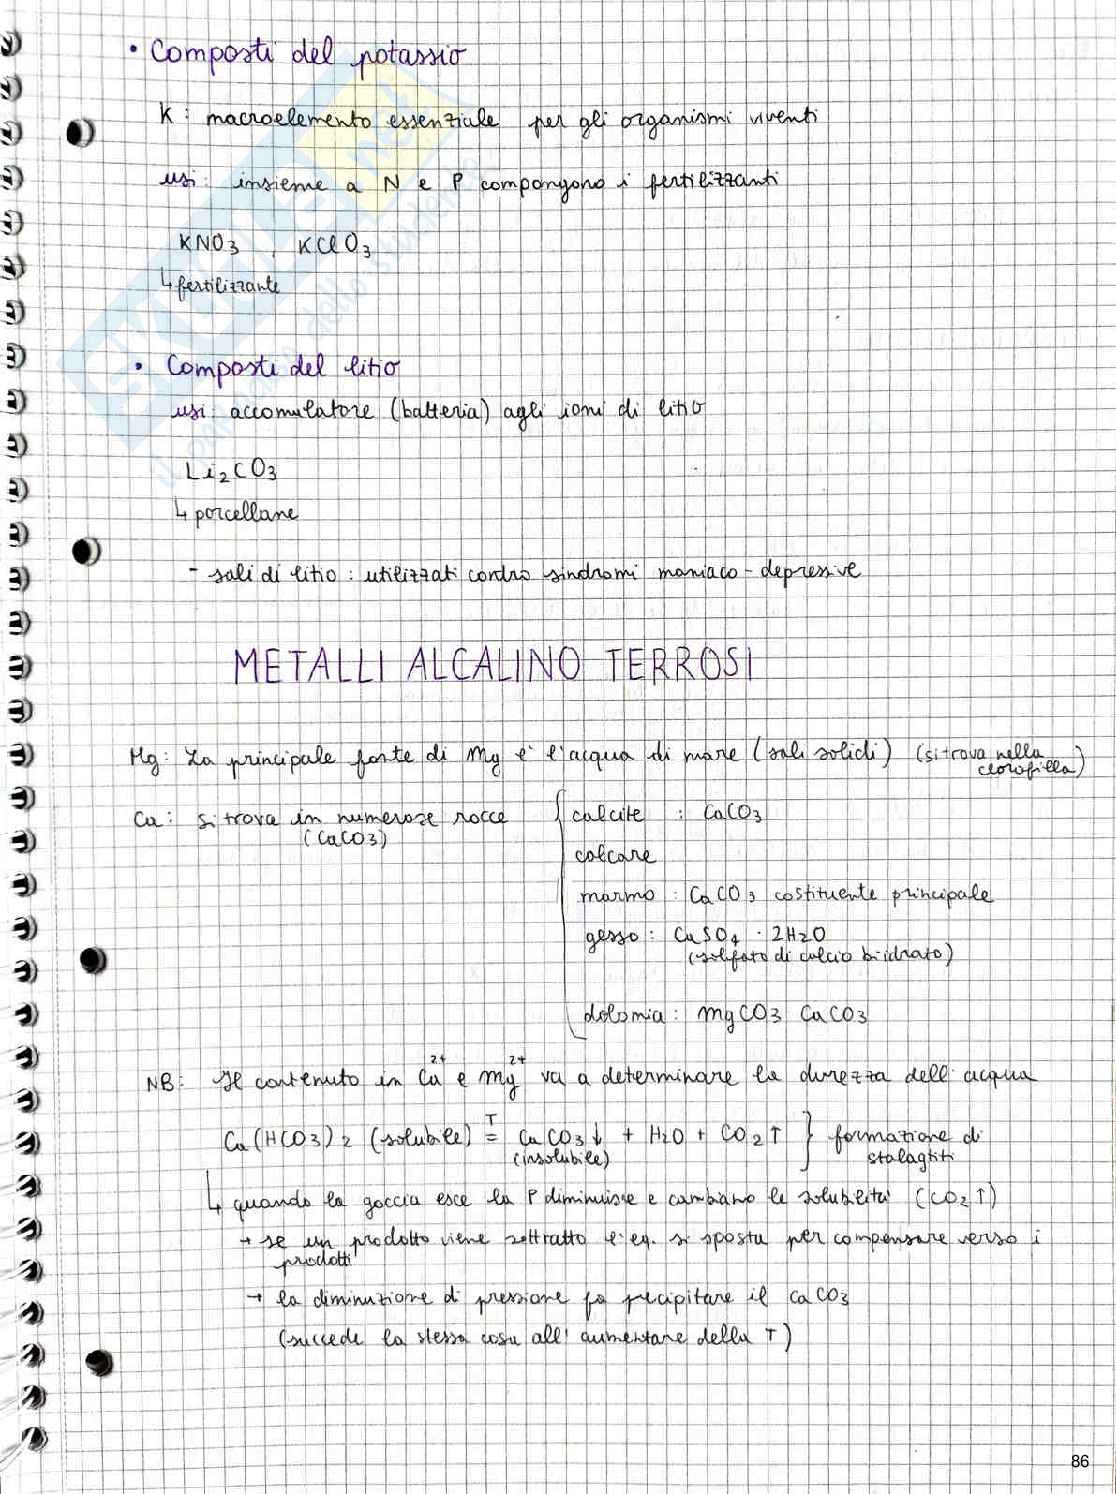 • Composti del potassio
K : macroelemento essenziale per gli organismi viventi
usi: insieme a N e P compongono i fertilizzanti
KNO3 , KClO3
↳ fertilizzante
• Composti del litio
usi: accomulatore (batteria) agli ioni di litio
Li2CO3
↳ porcellane
- sali di litio : utilizzati contro sindromi maniaco - depressive
METALLI ALCALINO TERROSI
Mg: La principale fonte di Mg è l'acqua di mare (sali solidi) (si trova nella clorofilla)
Ca: si trova in numerose rocce
(CaCO3)
calcite : CaCO3
calcare
marmo : CaCO3 costituente principale
gesso : CaSO4 · 2H2O
(solfato di calcio biidrato)
dolomia : MgCO3 CaCO3
NB: Il contenuto in Ca2+ e Mg2+ va a determinare la durezza dell'acqua
Ca(HCO3)2 (solubile) =T CaCO3↓ + H2O + CO2↑ } formazione di stalagtiti
(insolubile)
↳ quando la goccia esce la P diminuisce e cambiano le solubilità (CO2↑)
→ se un prodotto viene sottratto l'eq. si sposta per compensare verso i
prodotti
→ la diminuzione di pressione fa precipitare il CaCO3
(succede la stessa cosa all'aumentare della T)
86